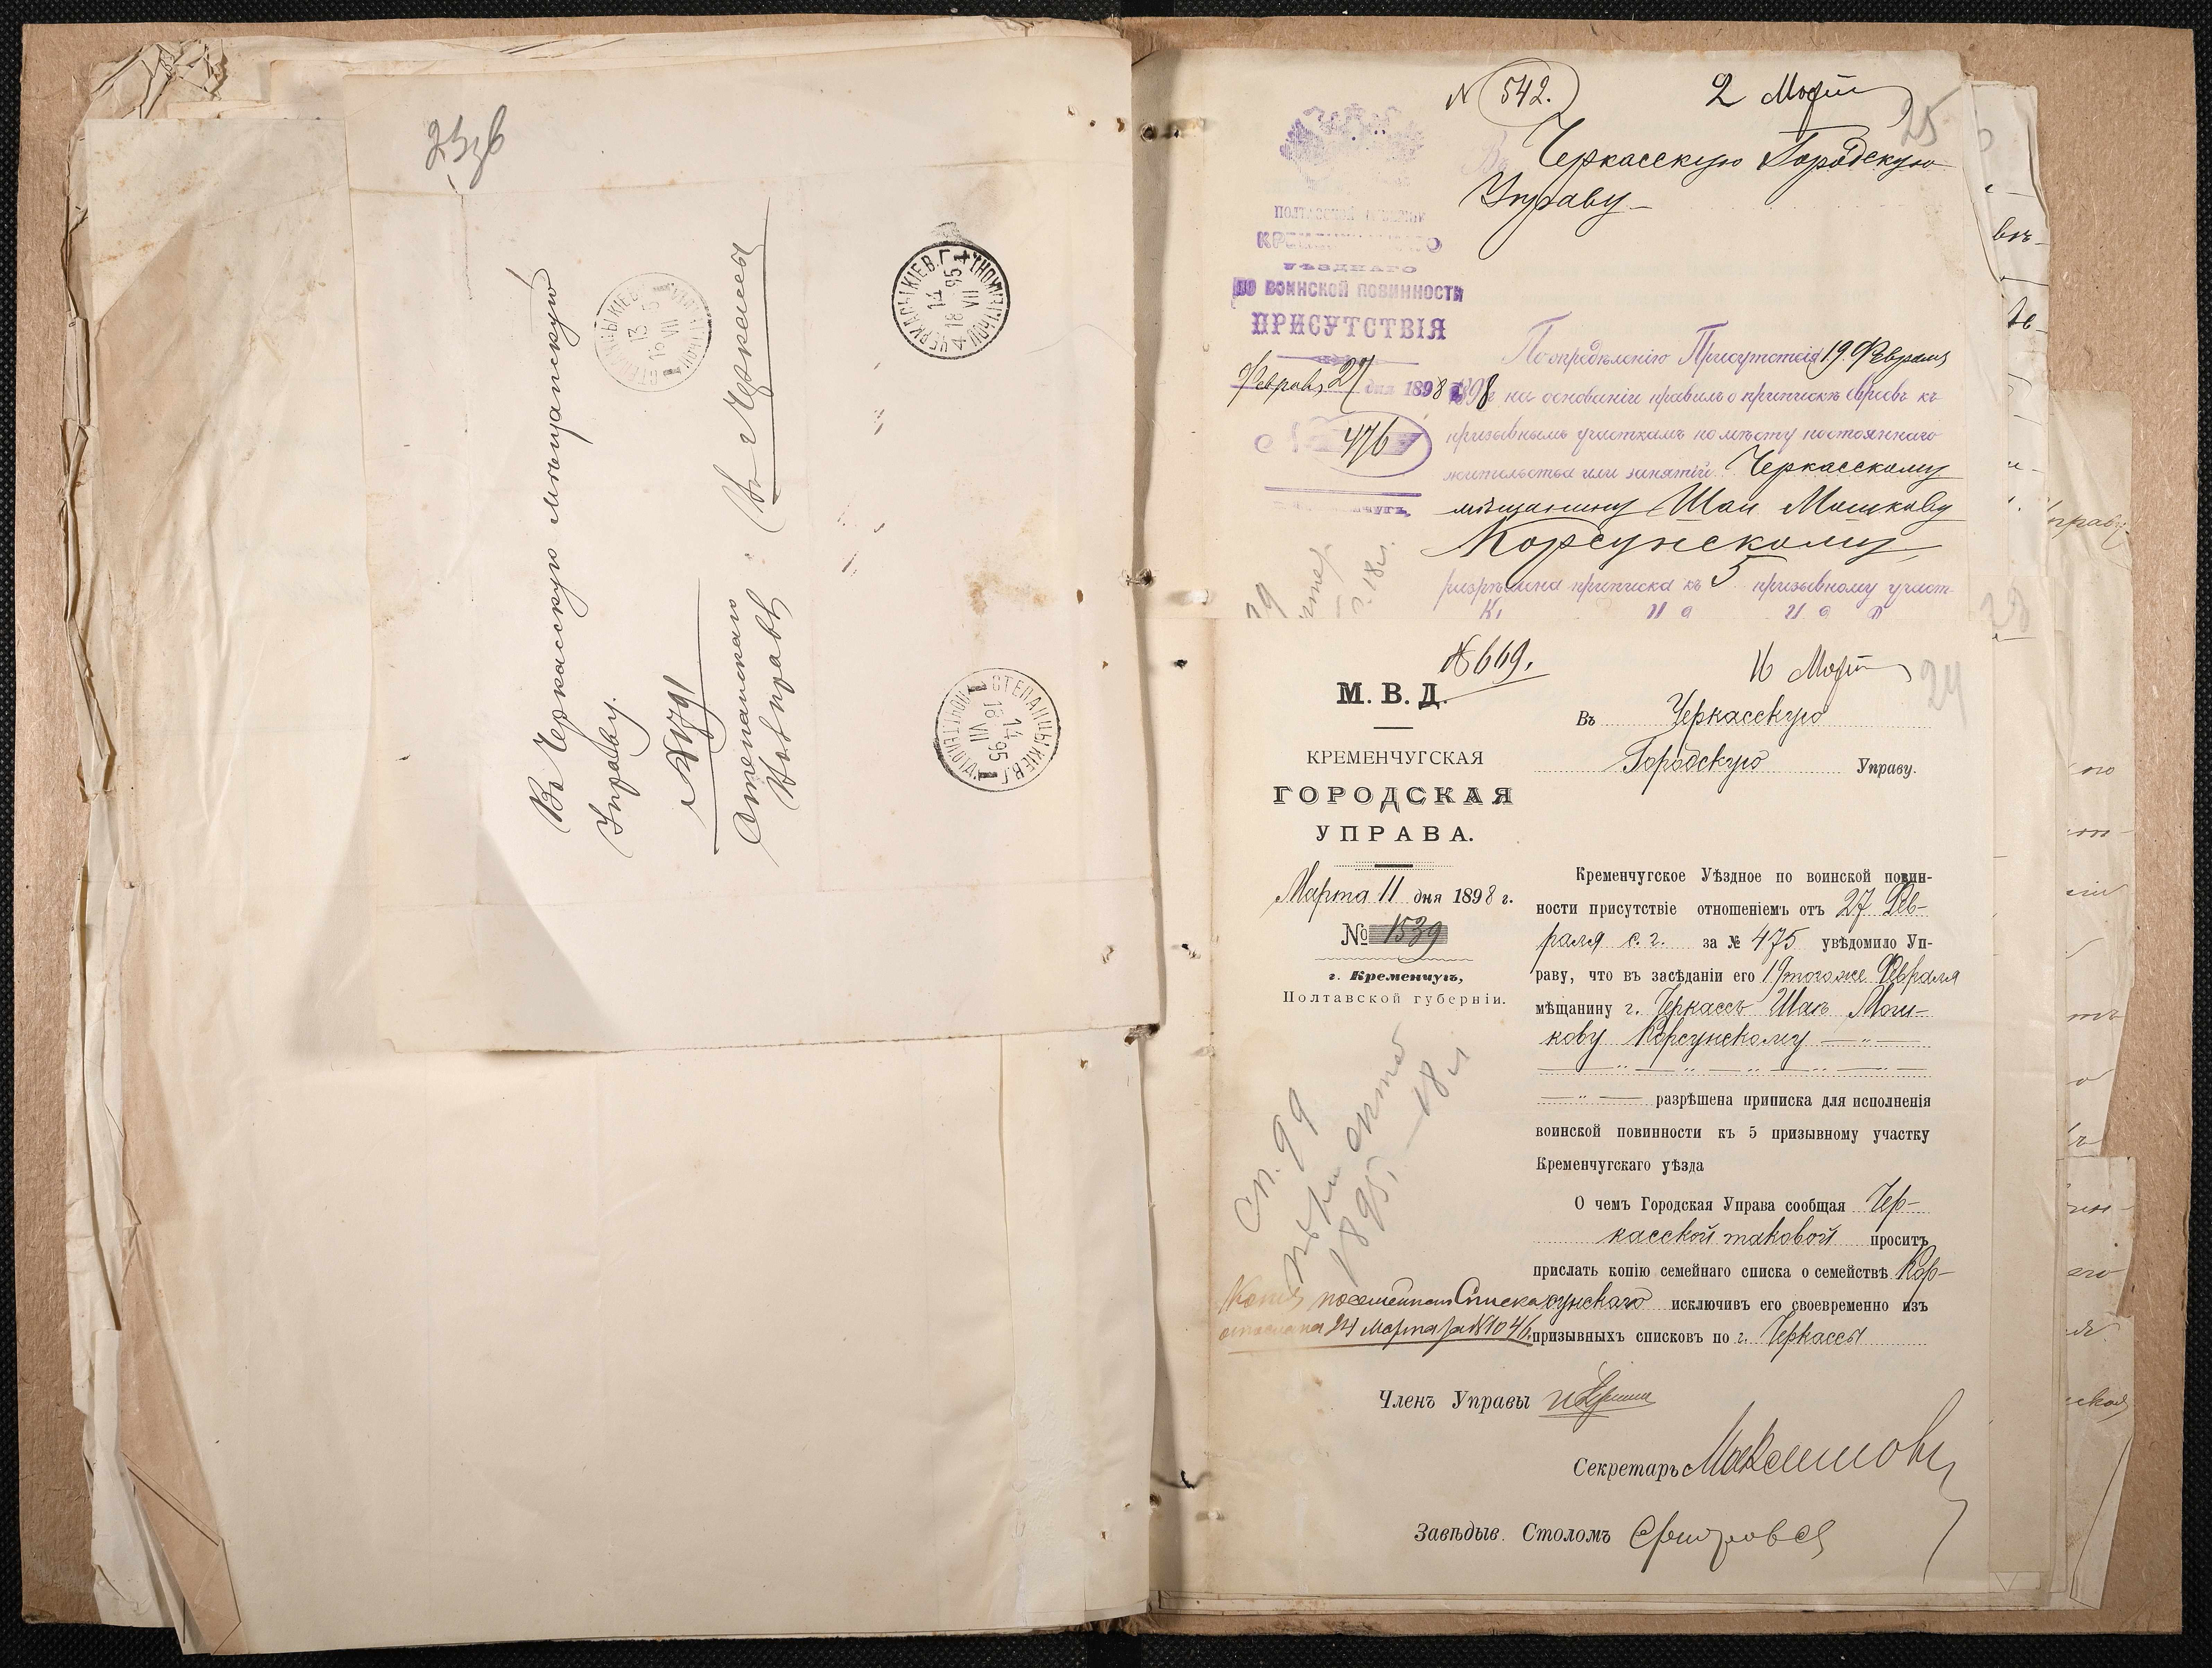 23об
Въ Черкасскую мѣщанскую
Управу.
№ 1791
Степанскаго
Вол правл
Въ г Черкассы
СТЕПАНЦЫ КІЕВ. Г.
13 VII 95
ЧЕРКАСЫ КІЕВ. Г.
14 VII 1895
СТЕПАНЦЫ КІЕВ. Г.
14 VII 1895
№ 542.
2 Март
25
Въ Черкасскую Городскую
Управу
ПОЛТАВСКОЙ ГУБЕРНІИ
КРЕМЕНЧУГСКАГО
УѢЗДНАГО
ПО ВОИНСКОЙ ПОВИННОСТИ
ПРИСУТСТВІЯ
Февраля 27 дня 1898 г.
№ 476
По опредѣленію Присутствія 19 Февраля
1898 г на основаніи правилъ о припискѣ евреевъ къ
призывнымъ участкамъ по мѣсту постояннаго
жительства или занятій Черкасскому
мѣщанину Шаи Мошкову
Корсунскому
разрѣшена приписка къ 5 призывному участ-
№ 669.
16 Март
24
М. В. Д.
КРЕМЕНЧУГСКАЯ
ГОРОДСКАЯ
УПРАВА.
Марта 11 дня 1898 г.
№ 1539
г. Кременчугъ,
Полтавской губерніи.
Въ Черкасскую
Городскую Управу.
Кременчугское Уѣздное по воинской повин-
ности присутствіе отношеніемъ отъ 27 Фев-
раля с. г. за № 475 увѣдомило Уп-
раву, что въ засѣданіи его 19 того же Февраля
мѣщанину г. Черкассъ Шаѣ Мош-
кову Корсунскому
разрѣшена приписка для исполненія
воинской повинности къ 5 призывному участку
Кременчугскаго уѣзда
О чемъ Городская Управа сообщая Чер-
касской таковой проситъ
прислать копію семейнаго списка о семействѣ Кор-
сунскаго исключивъ его своевременно изъ
призывныхъ списковъ по г. Черкассы
сп. 99
1895, — 18 л
Копія посемейнаго Списка
отослана 24 Марта за № 1046.
Членъ Управы
Секретарь Максимовъ
Завѣдыв. Столомъ